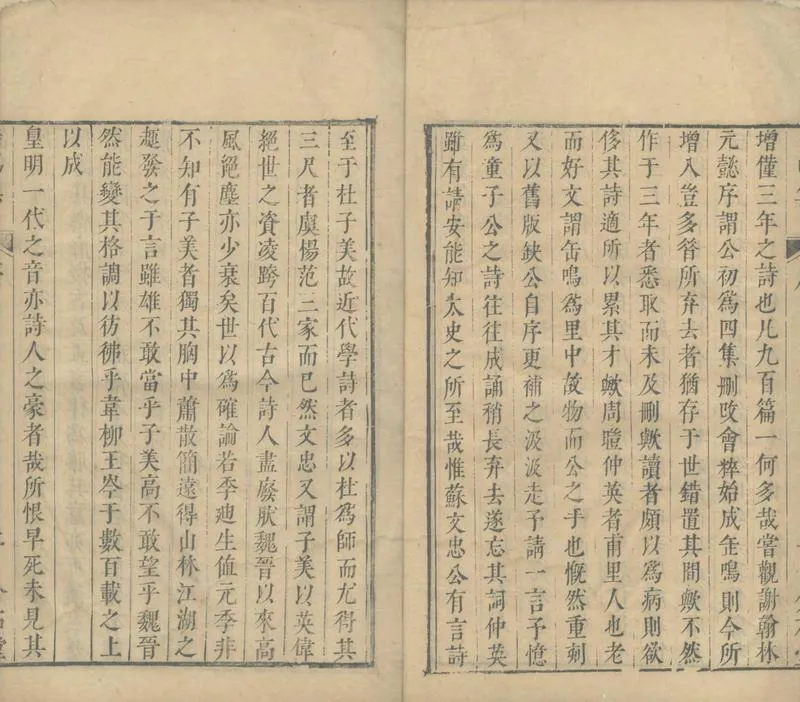 增僅三年之詩也凡九百篇一何多哉嘗觀謝翰林
元懿序謂公初為四集刪改會稡始成缶鳴則今所
增入豈多咨所弃去者猶存于世錯置其間歟不然
作于三年者悉取而未及刪歟讀者頗以為病則欲
侈其詩適所以累其才歟周𥊍仲英者甫里人也老
而好文謂缶鳴為里中故物而公之手也慨然重刺
又以舊版缺公自序更補之汲汲走予請一言予憶
為童子公之詩往往成誦稍長弃去遂忘其詞仲英
雖有請安能知太史之所至哉惟蘇文忠公有言詩
至于杜子美故近代學詩者多以杜為師而尤得其
三尺者虞楊范三家而已然文忠又謂子美以英偉
絕世之資凌跨百代古今詩人盡廢肰魏晉以來高
風絕塵亦少衰矣世以為確論若季迪生值元季非
不知有子美者獨其胸中蕭散簡遠得山林江湖之
趣發之于言雖雄不敢當乎子美高不敢望乎魏晉
然能變其格調以彷彿乎韋柳王岑于數百載之上
以成
皇明一代之音亦詩人之豪者哉所恨早死未見其